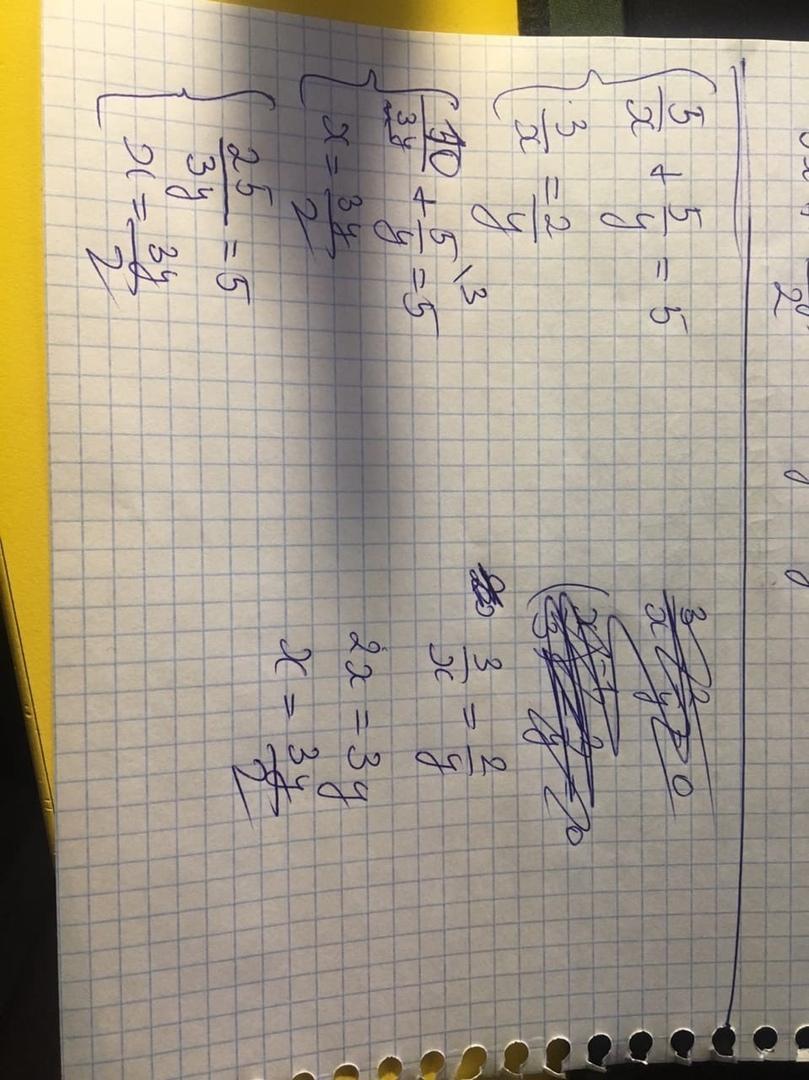 5/x + 5/y = 5
3/x = 2/y
10/3y + 5/y \3 = 5
x = 3y/2
25/3y = 5
x = 3y/2
3/x = 2/y
2x = 3y
x = 3y/2